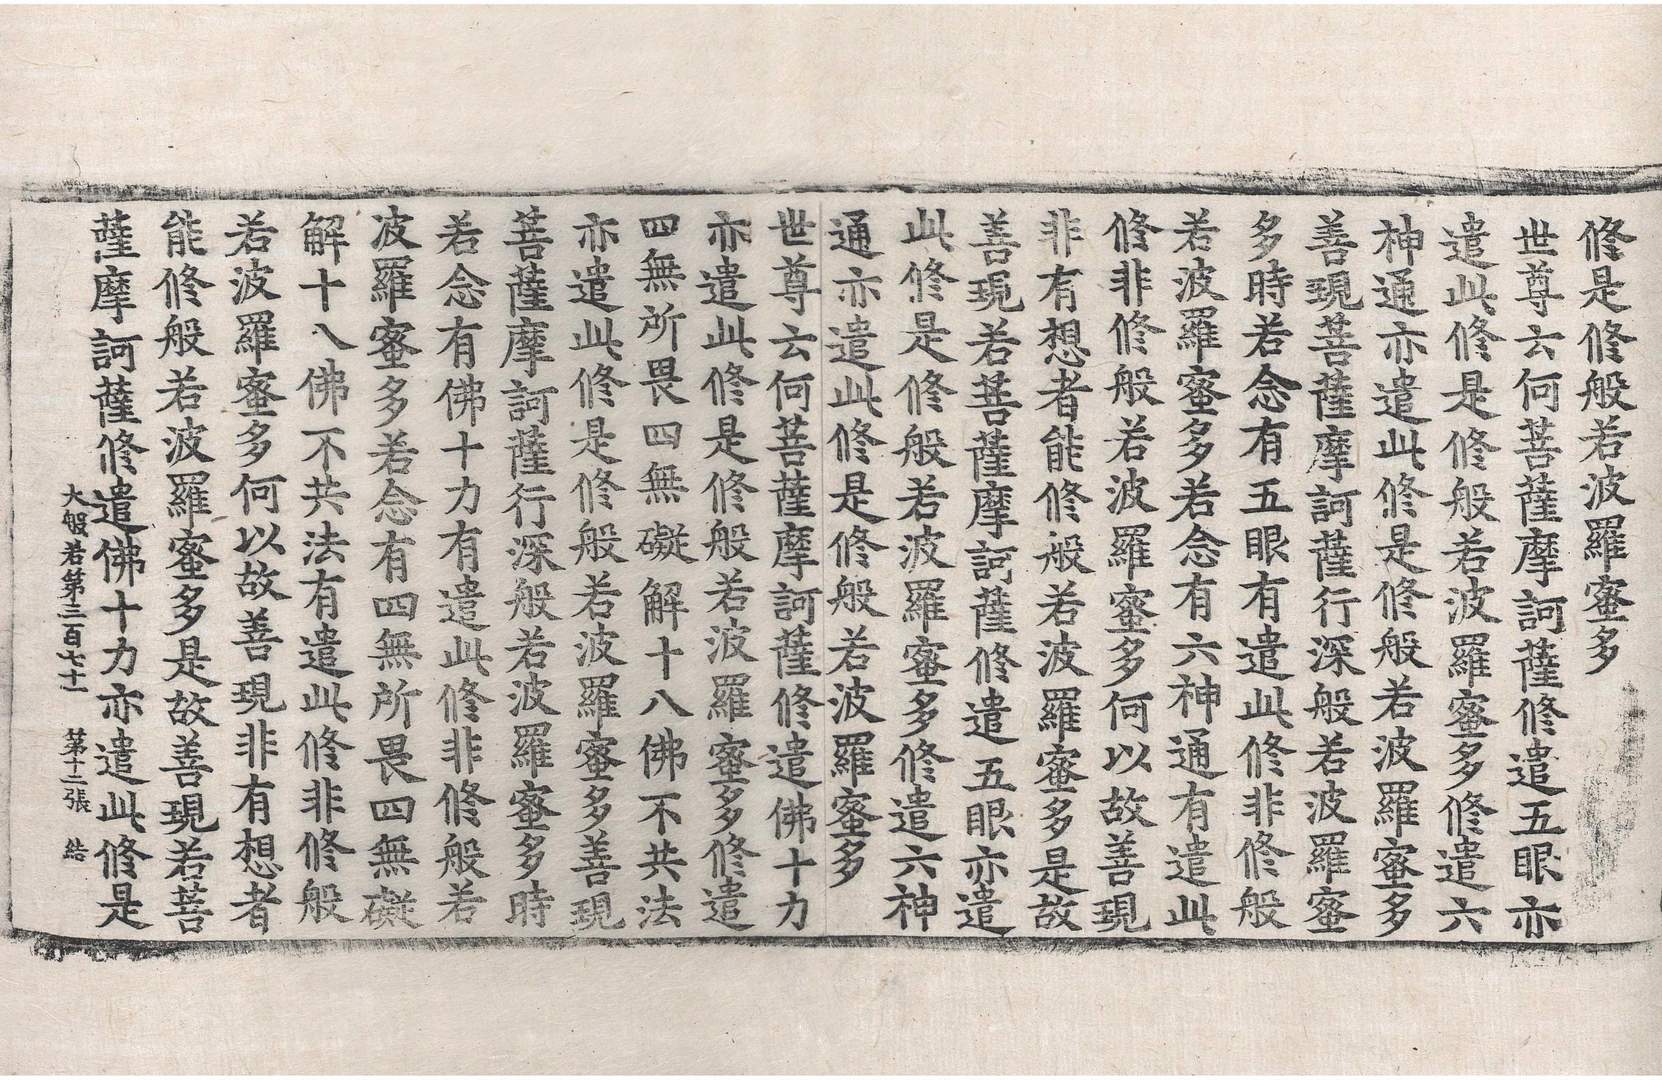 修是修般若波羅蜜多
世尊云何菩薩摩訶薩修遣五眼亦
遣此修是修般若波羅蜜多修遣六
神通亦遣此修是修般若波羅蜜多
善現菩薩摩訶薩行深般若波羅蜜
多時若念有五眼有遣此修非修般
若波羅蜜多若念有六神通有遣此
修非修般若波羅蜜多何以故善現
非有想者能修般若波羅蜜多是故
善現若菩薩摩訶薩修遣五眼亦遣
此修是修般若波羅蜜多修遣六神
通亦遣此修是修般若波羅蜜多
世尊云何菩薩摩訶薩修遣佛十力
亦遣此修是修般若波羅蜜多修遣
四無所畏四無礙解十八佛不共法
亦遣此修是修般若波羅蜜多善現
菩薩摩訶薩行深般若波羅蜜多時
若念有佛十力有遣此修非修般若
波羅蜜多若念有四無所畏四無礙
解十八佛不共法有遣此修非修般
若波羅蜜多何以故善現非有想者
能修般若波羅蜜多是故善現若菩
薩摩訶薩修遣佛十力亦遣此修是
大般若第三百七十一 第十二張 結